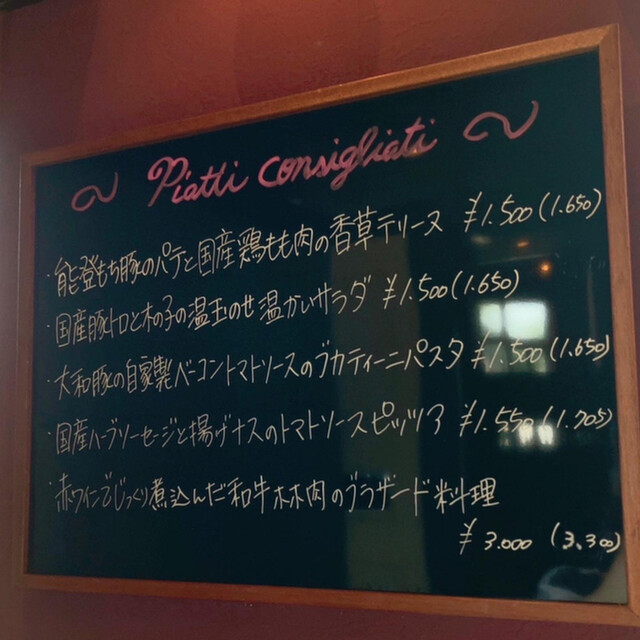 ~ Piatti consigliati ~
・能登もち豚のパテと国産鶏もも肉の香草テリーヌ ¥1.500(1.650)
・国産豚トロと木の子の温玉のせ温かいサラダ ¥1.500(1.650)
・大和豚の自家製ベーコントマトソースのブカティーニパスタ ¥1.500(1.650)
・国産ハーブソーセージと揚げナスのトマトソースピッツァ ¥1.550(1.705)
・赤ワインでじっくり煮込んだ和牛ホホ肉のブラザード料理
¥3.000 (3.300)